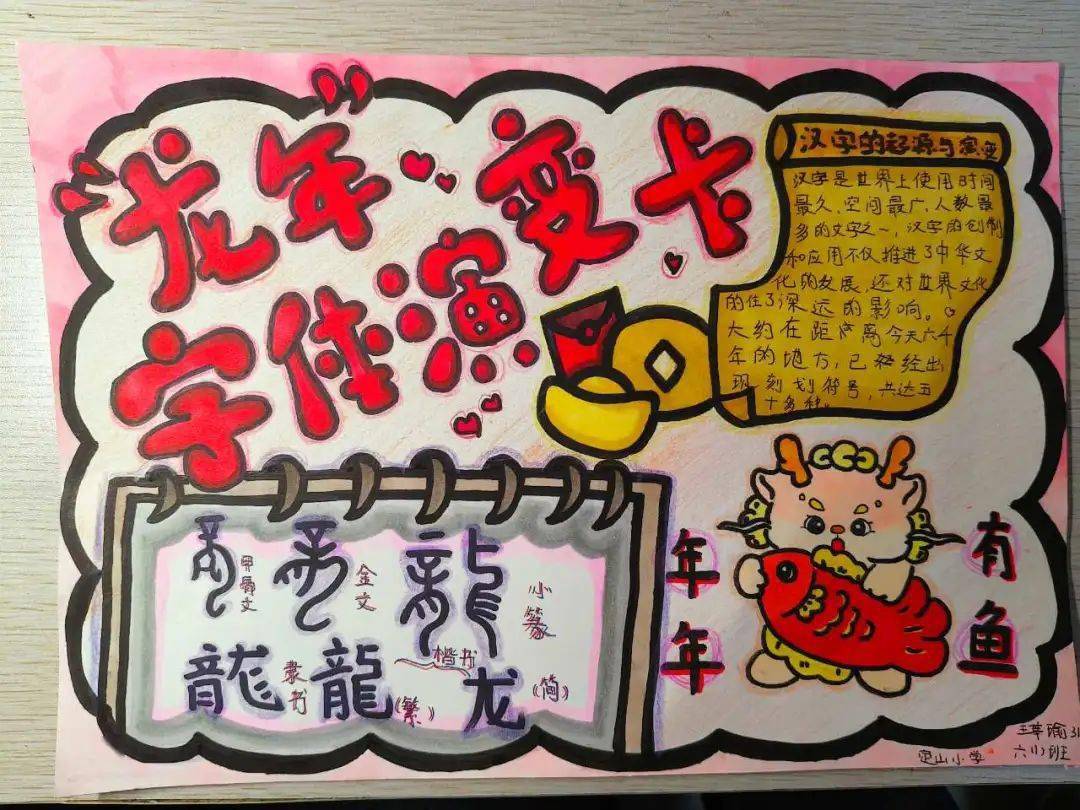 龙年
字体演变卡
汉字的起源与演变
汉字是世界上使用时间
最久、空间最广、人数最
多的文字之一，汉字的创制
和应用不仅推进了中华文
化的发展，还对世界文化
的住了深远的影响。
大约在距离今天六千
年的地方，已经出
现刻划符号，共达五
十多种。
甲骨文
金文
龍
小篆
龍
隶书
龍
楷书
《繁》
龙
《简》
年年
有鱼
瑜 31
定山小学
六(1)班